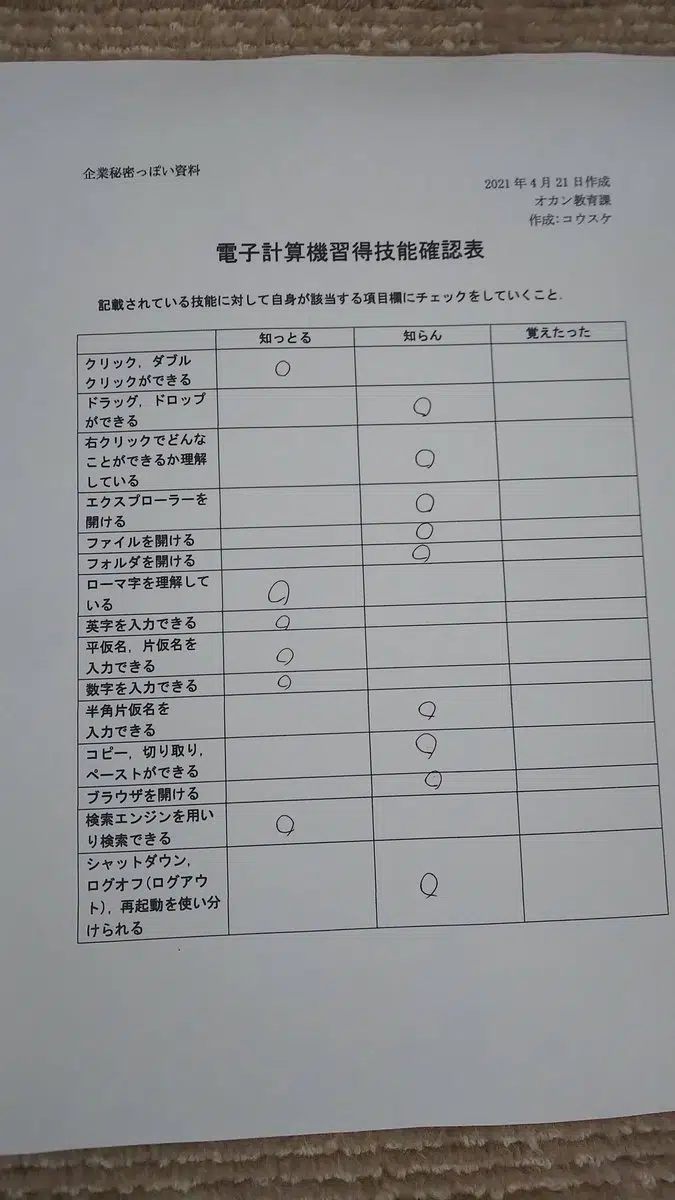 企業秘密っぽい資料
2021年4月21日作成
オカン教育課
作成:コウスケ
電子計算機習得技能確認表
記載されている技能に対して自身が該当する項目欄にチェックをしていくこと.
知っとる 知らん 覚えたった
クリック, ダブル
クリックができる ○
ドラッグ, ドロップ
ができる ○
右クリックでどんな
ことができるか理解
している ○
エクスプローラーを
開ける ○
ファイルを開ける ○
フォルダを開ける ○
ローマ字を理解して
いる ○
英字を入力できる ○
平仮名, 片仮名を
入力できる ○
数字を入力できる ○
半角片仮名を
入力できる ○
コピー, 切り取り,
ペーストができる ○
ブラウザを開ける ○
検索エンジンを用い
り検索できる ○
シャットダウン,
ログオフ(ログアウ
ト), 再起動を使い分
けられる ○